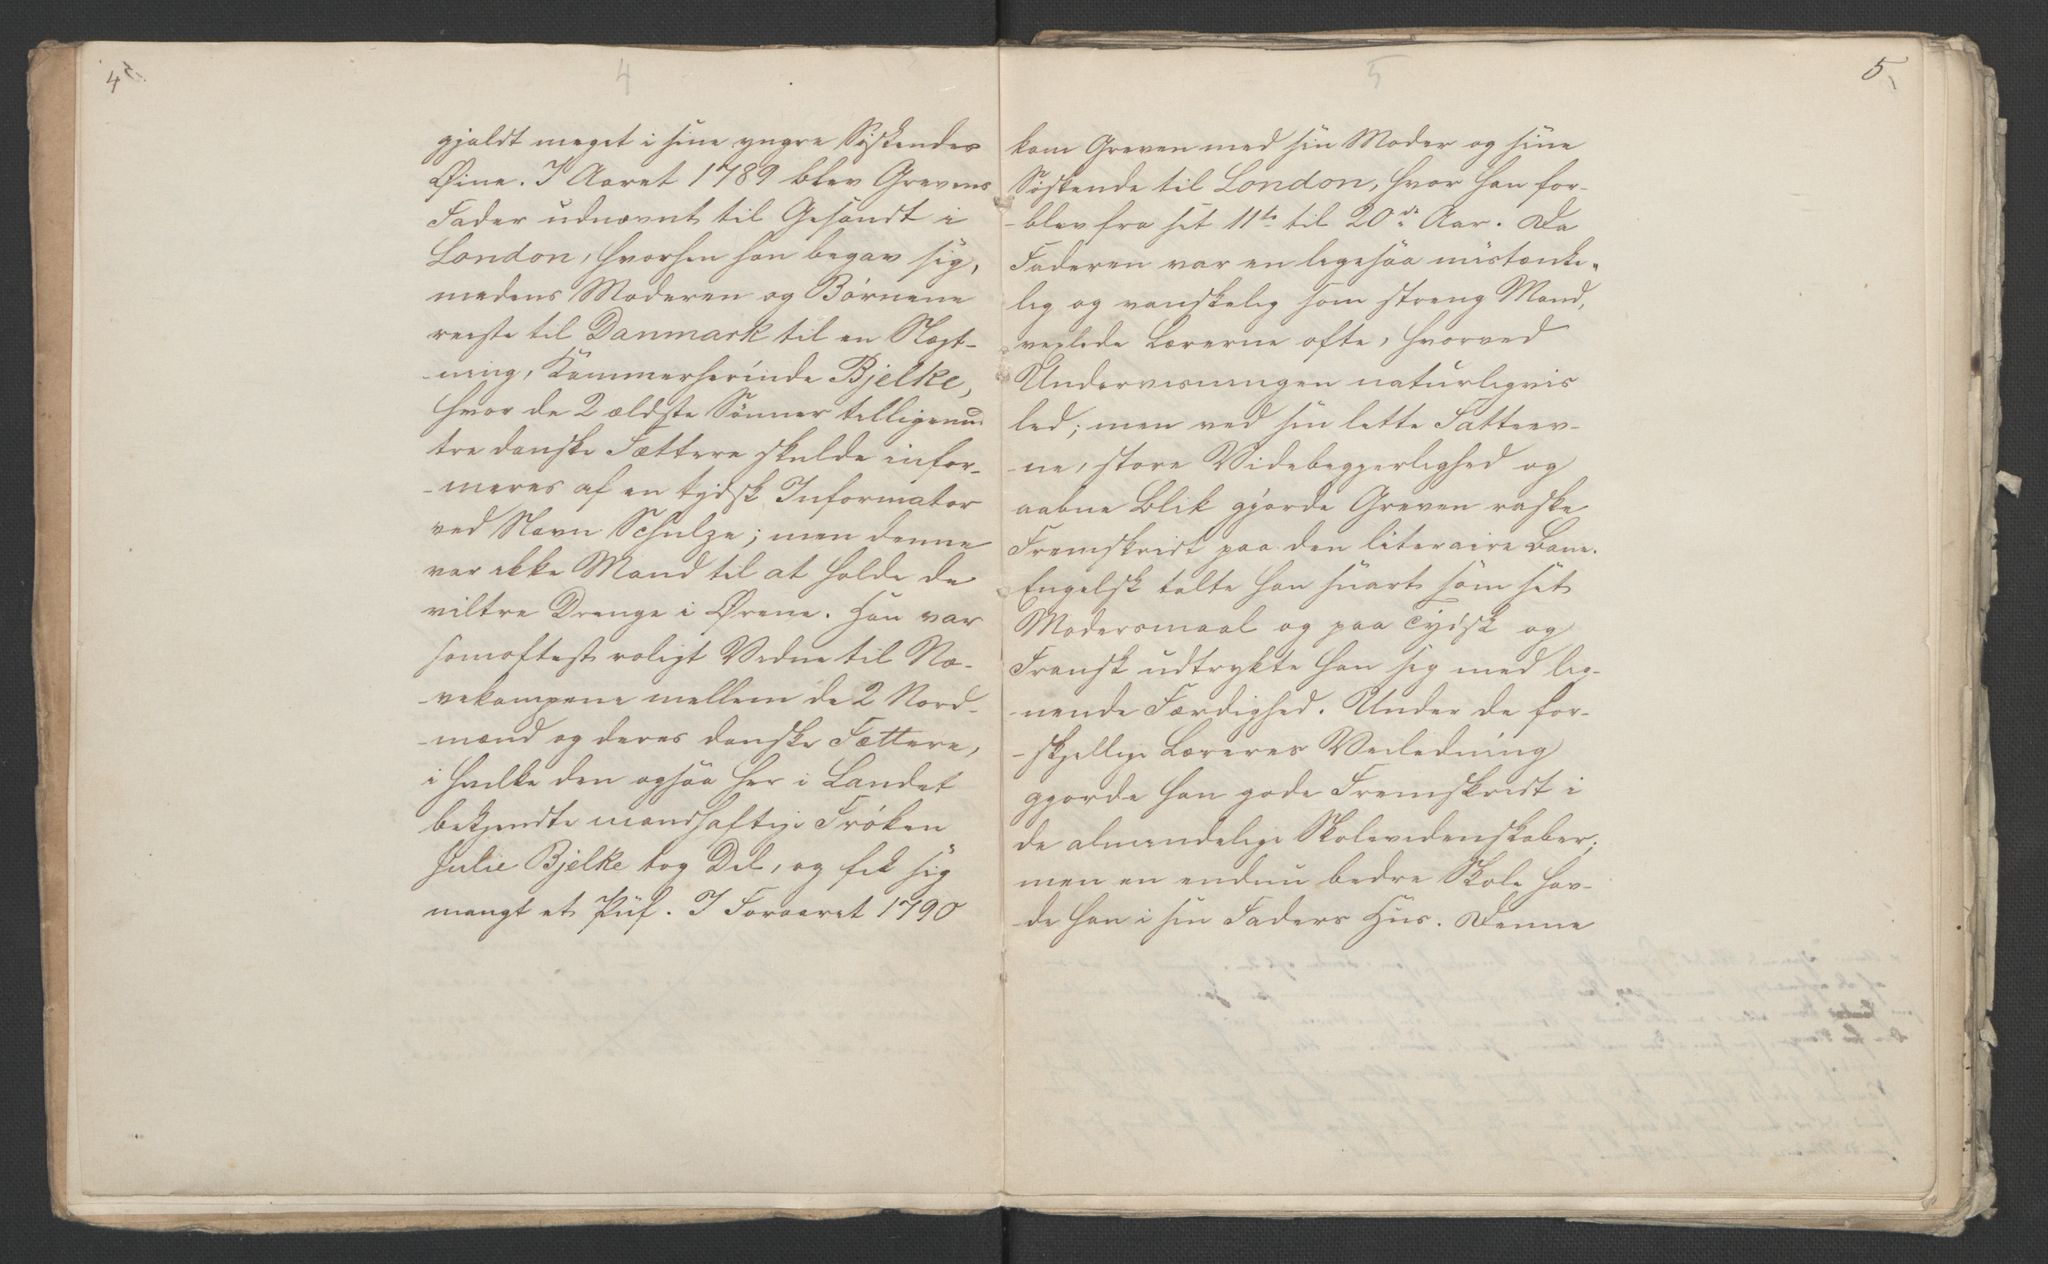 4
4
gjaldt meget i sine yngre Søskendes
Øine. I Aaret 1789 blev Grevens
Fader udnævnt til Gesandt i
London, hvorhen han begav sig,
medens Moderen og Børnene
reiste til Danmark til en Slægt-
-ning, Kammerherinde Bjelke,
hvor de 2 ældste Sønner tilligemed
tre danske Fættere skulde infor-
-meres af en tydsk Informator
ved Navn Schulze; men denne
var ikke Mand til at holde de
viltre Drenge i Ørene. Han var
somoftest roligt Vidne til Næ-
-vekampene mellem de 2 Nord-
-mænd og deres danske Fættere,
i hvilke den ogsaa her i Landet
bekjendte mandhaftige Frøken
Julie Bjelke tog Del, og fik sig
mangt et Puf. I Foraaret 1790
5
5
kom Greven med sin Moder og sine
Søskende til London, hvor han for-
-blev fra sit 11te til 20de Aar. Da
Faderen var en ligesaa mistænke-
lig og vanskelig som streng Mand,
vexlede Lærerne ofte, hvorved
Undervisningen naturligvis
led; men ved sin lette Fatteev-
-ne, store Videbegjerlighed og
aabne Blik gjorde Greven raske
Fremskridt paa den literaire Bane.
Engelsk talte han snart som sit
Modersmaal og paa Tydsk og
Fransk udtrykte han sig med lig-
-nende Færdighed. Under de for-
-skjellige Læreres Veiledning
gjorde han gode Fremskridt i
de almindelige Skolevidenskaber;
men en endnu bedre Skole hav-
-de han i sin Faders Hus. Denne